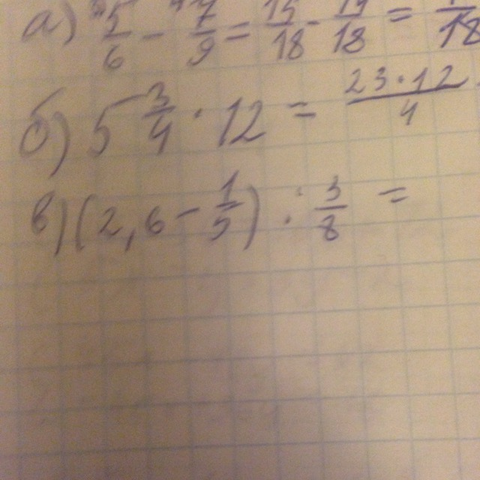 а) 5/6 - 7/9 = 15/18 - 14/18 = 1/18
б) 5 3/4 · 12 = 23·12/4
в) (2,6 - 1/5) : 3/8 =